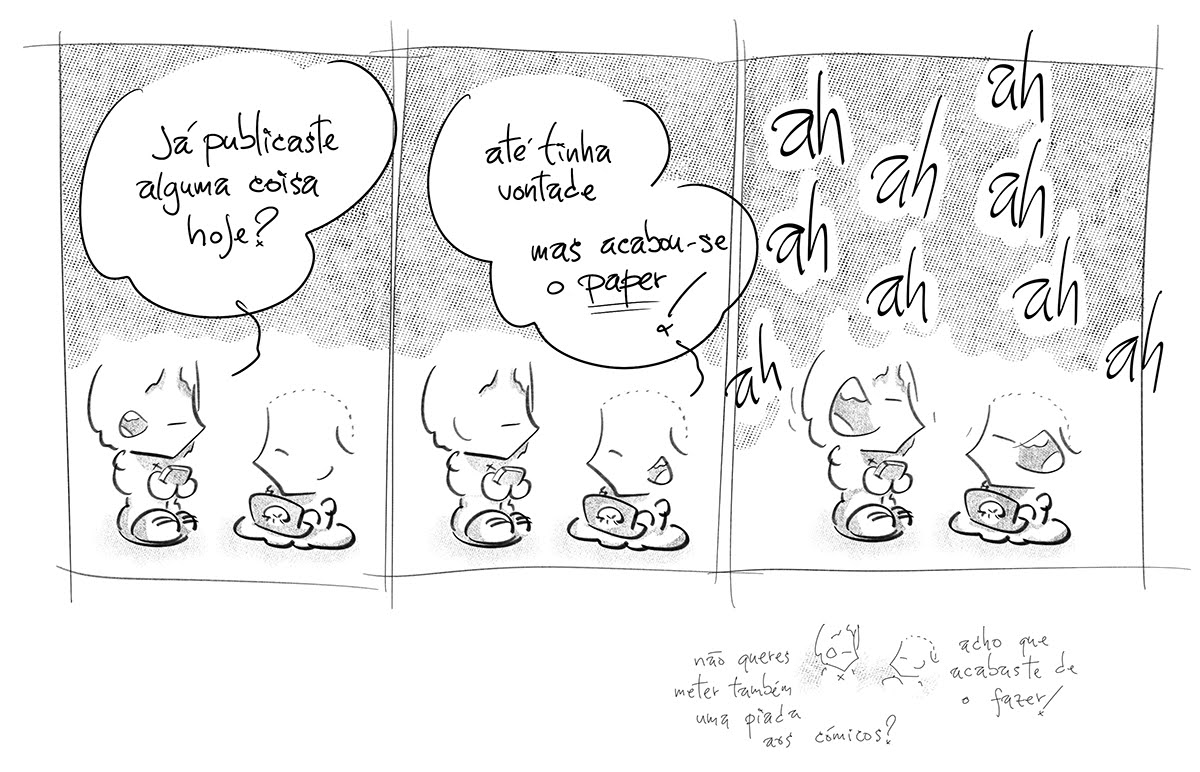 Já publicaste
alguma coisa
hoje?
até tinha
vontade
mas acabou-se
o paper
ah
ah
ah
ah
ah
ah
ah
ah
ah
não queres
meter também
uma piada
aos cómicos?
acho que
acabaste de
o fazer!